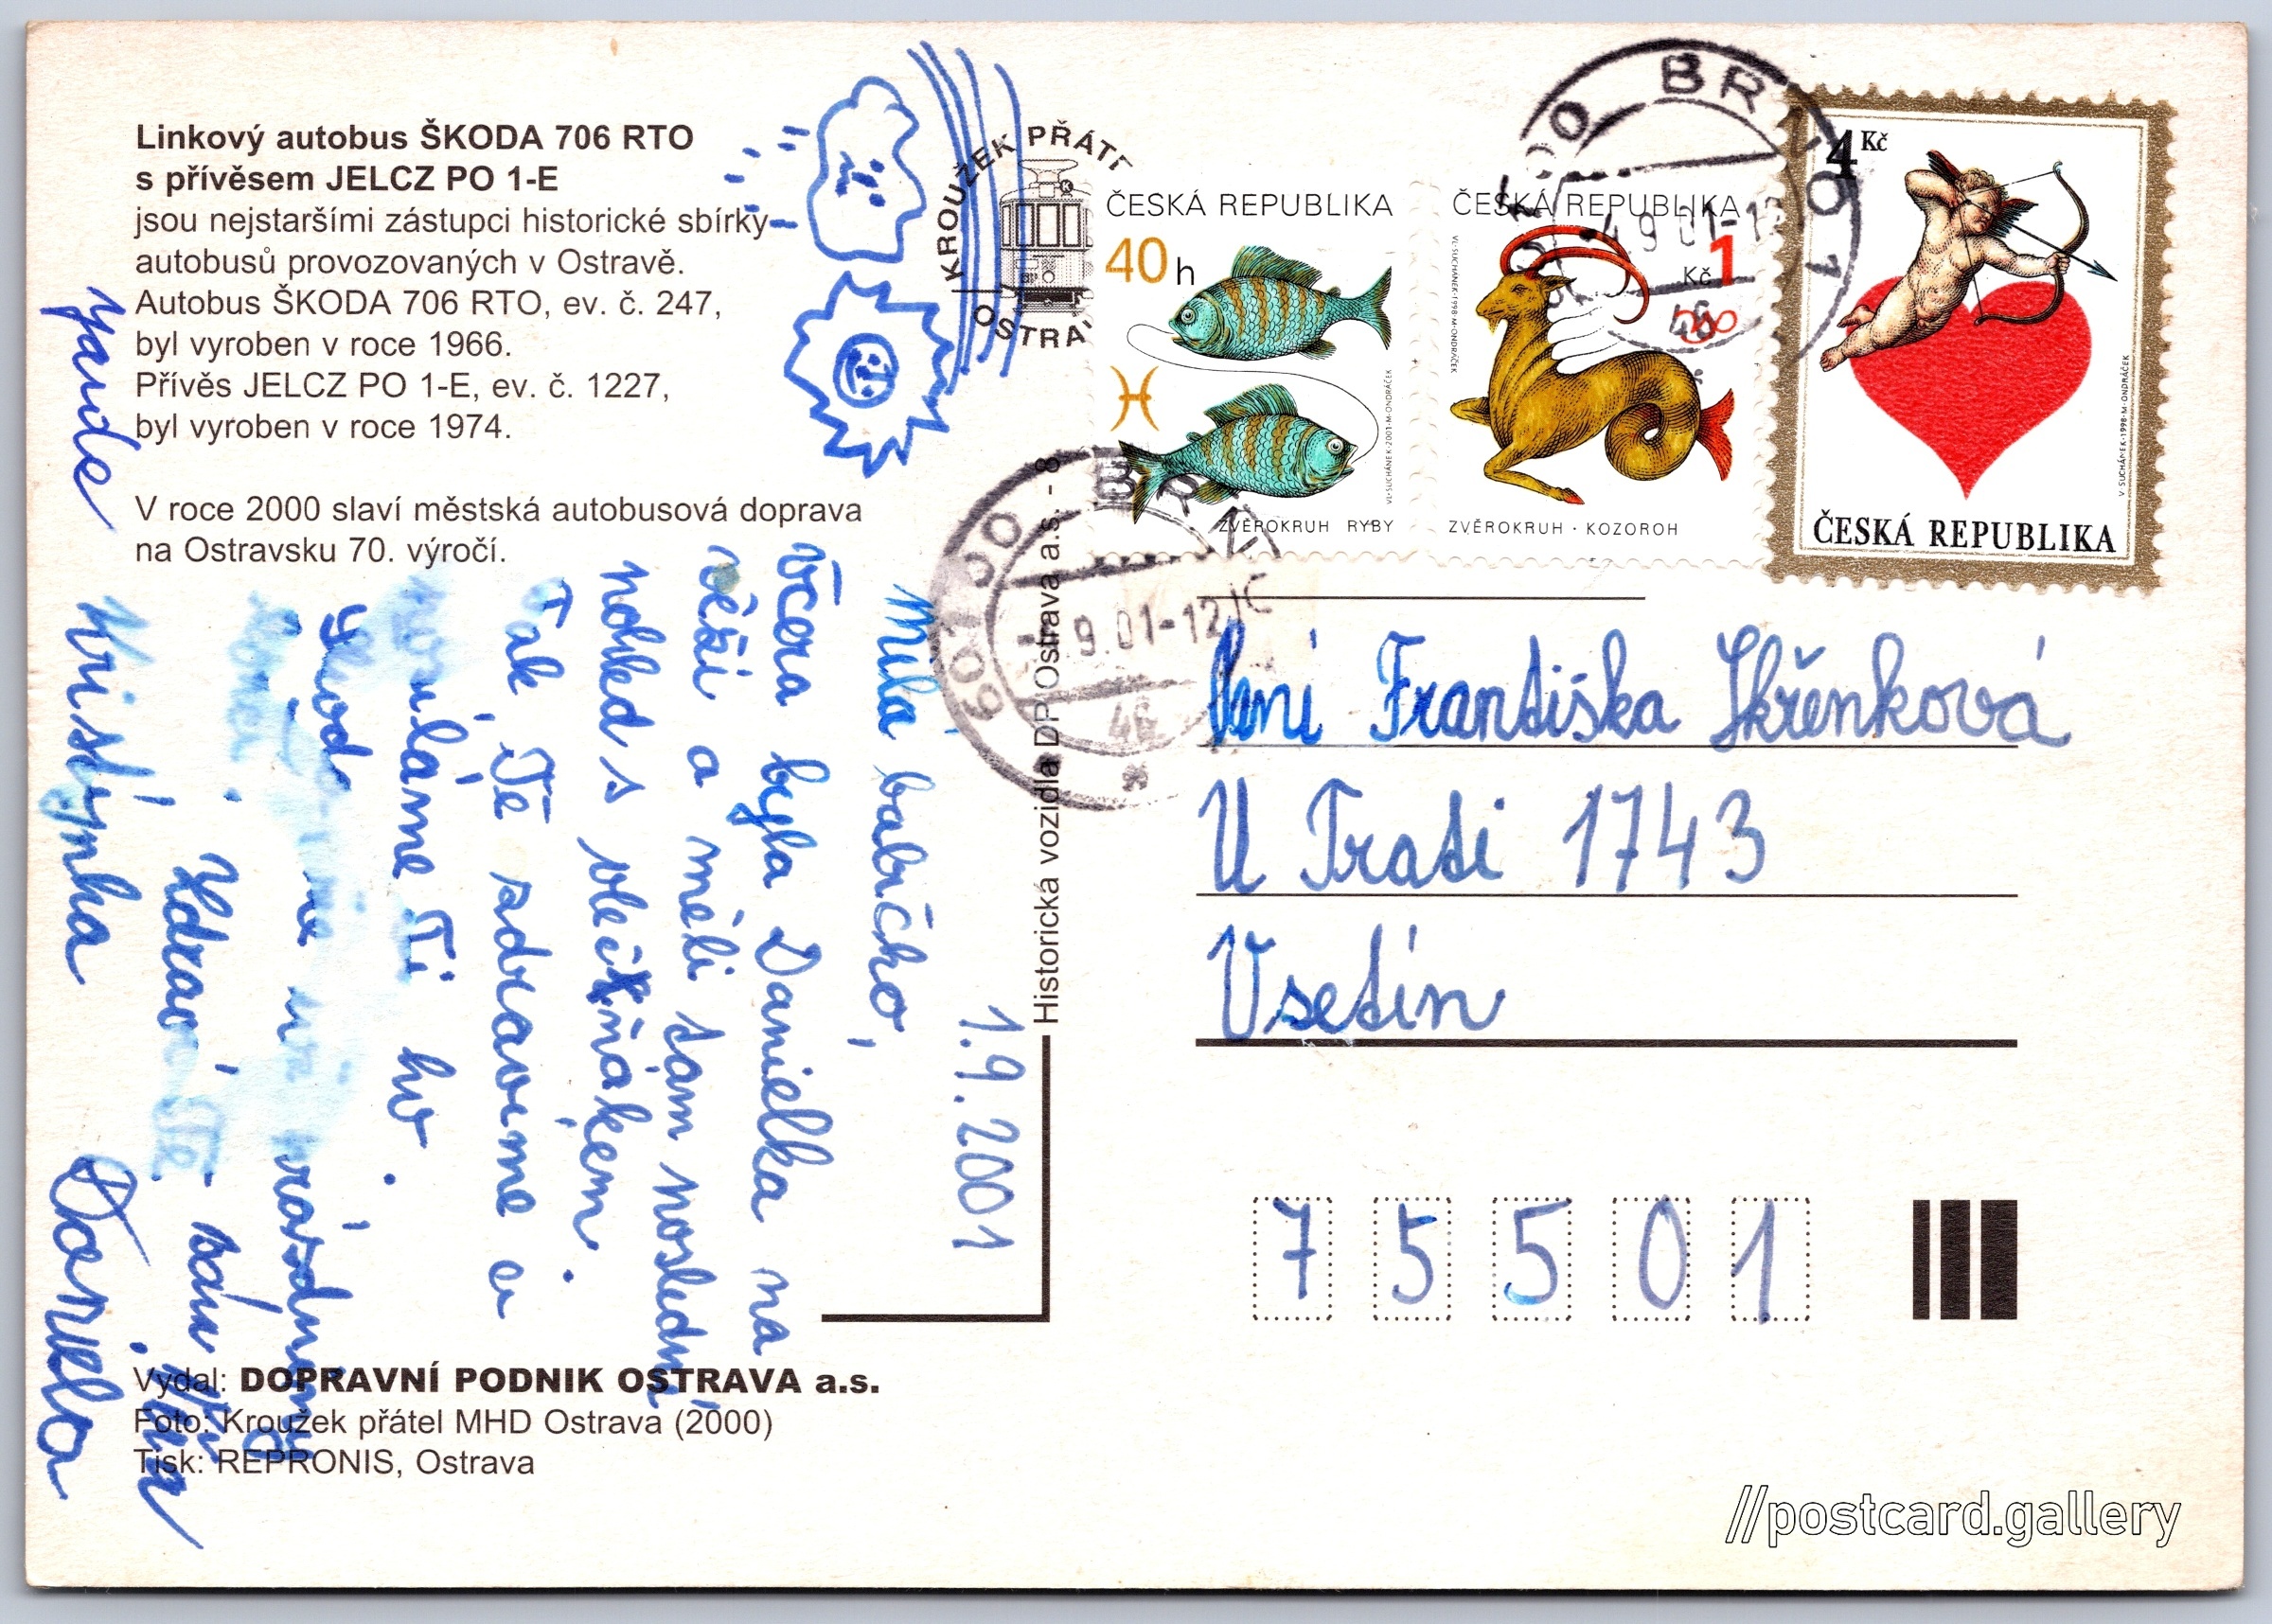 Linkový autobus ŠKODA 706 RTO
s přívěsem JELCZ PO 1-E
jsou nejstaršími zástupci historické sbírky
autobusů provozovaných v Ostravě.
Autobus ŠKODA 706 RTO, ev. č. 247,
byl vyroben v roce 1966.
Přívěs JELCZ PO 1-E, ev. č. 1227,
byl vyroben v roce 1974.
V roce 2000 slaví městská autobusová doprava
na Ostravsku 70. výročí.
1.9.2001
Milá babičko,
včera byla Danielka na
věži a měli tam poslední
pohled s vlečňákem.
Tak Tě zdravíme a
posíláme Ti ho.
prázdniny
Zdraví Tě
Kristýnka Daniela
Vydal: DOPRAVNÍ PODNIK OSTRAVA a.s.
Foto: Kroužek přátel MHD Ostrava (2000)
Tisk: REPRONIS, Ostrava
Historická vozidla DP Ostrava a.s. - 8
KROUŽEK PŘÁT
OSTRA
ČESKÁ REPUBLIKA
40 h
VL·SUCHÁNEK·2001·M·ONDRÁČEK
ZVĚROKRUH RYBY
ČESKÁ REPUBLIKA
Kč 1
VL·SUCHÁNEK·1998·M·ONDRÁČEK
ZVĚROKRUH · KOZOROH
4 Kč
V·SUCHÁNEK·1998·M·ONDRÁČEK
ČESKÁ REPUBLIKA
BRNO 1
49 01-12
46
601 00 BRN
9.01-12
46
Paní Františka Skřenková
U Trati 1743
Vsetín
75501
//postcard.gallery